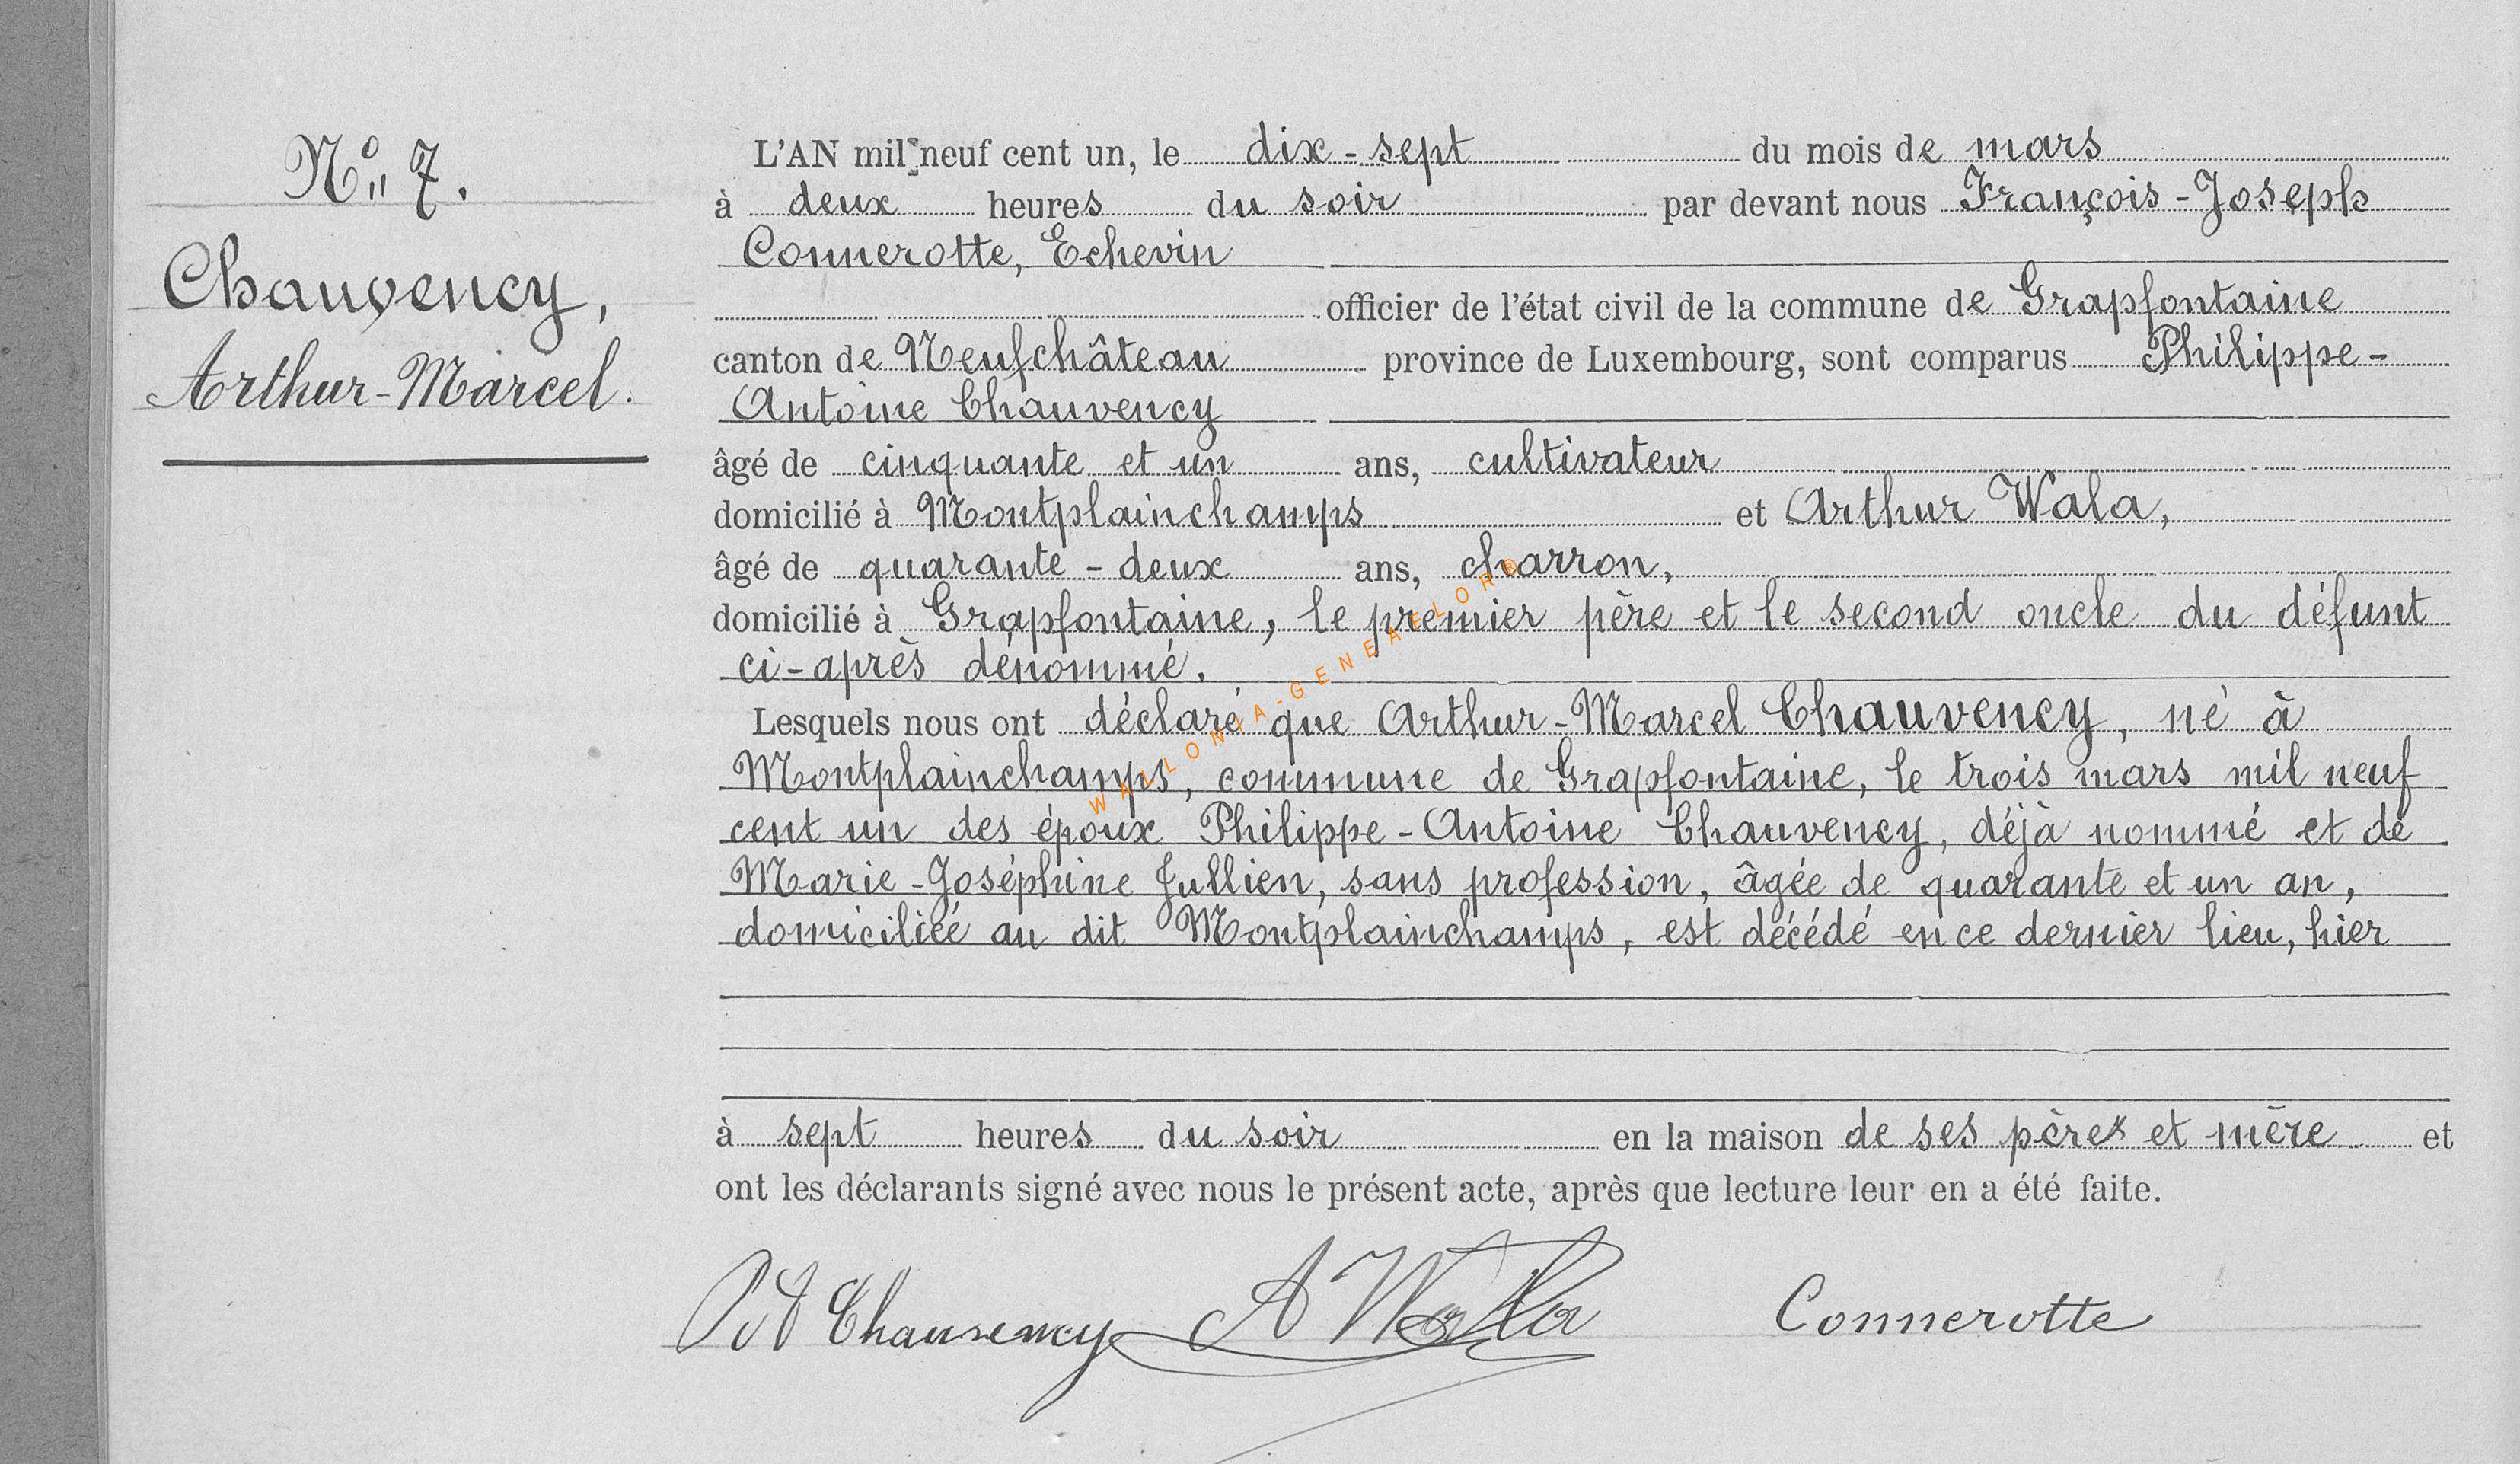 N° 7.
Chauvency,
Arthur-Marcel.
L'AN mil neuf cent un, le dix-sept du mois de mars
à deux heures du soir par devant nous François-Joseph
Connerotte, Echevin
officier de l'état civil de la commune de Grapfontaine
canton de Neufchâteau province de Luxembourg, sont comparus Philippe-
Antoine Chauvency
âgé de cinquante et un ans, cultivateur
domicilié à Montplainchamps et Arthur Wala,
âgé de quarante-deux ans, charron,
domicilié à Grapfontaine, le premier père et le second oncle du défunt
ci-après dénommé.
Lesquels nous ont déclaré que Arthur-Marcel Chauvency, né à
Montplainchamps, commune de Grapfontaine, le trois mars mil neuf
cent un des époux Philippe-Antoine Chauvency, déjà nommé et de
Marie-Joséphine Jullien, sans profession, âgée de quarante et un an,
domiciliée au dit Montplainchamps, est décédé en ce dernier lieu, hier
à sept heures du soir en la maison de ses père et mère et
ont les déclarants signé avec nous le présent acte, après que lecture leur en a été faite.
PA Chauvency A Walla Connerotte
WALLONIA-GENEAFLOR®